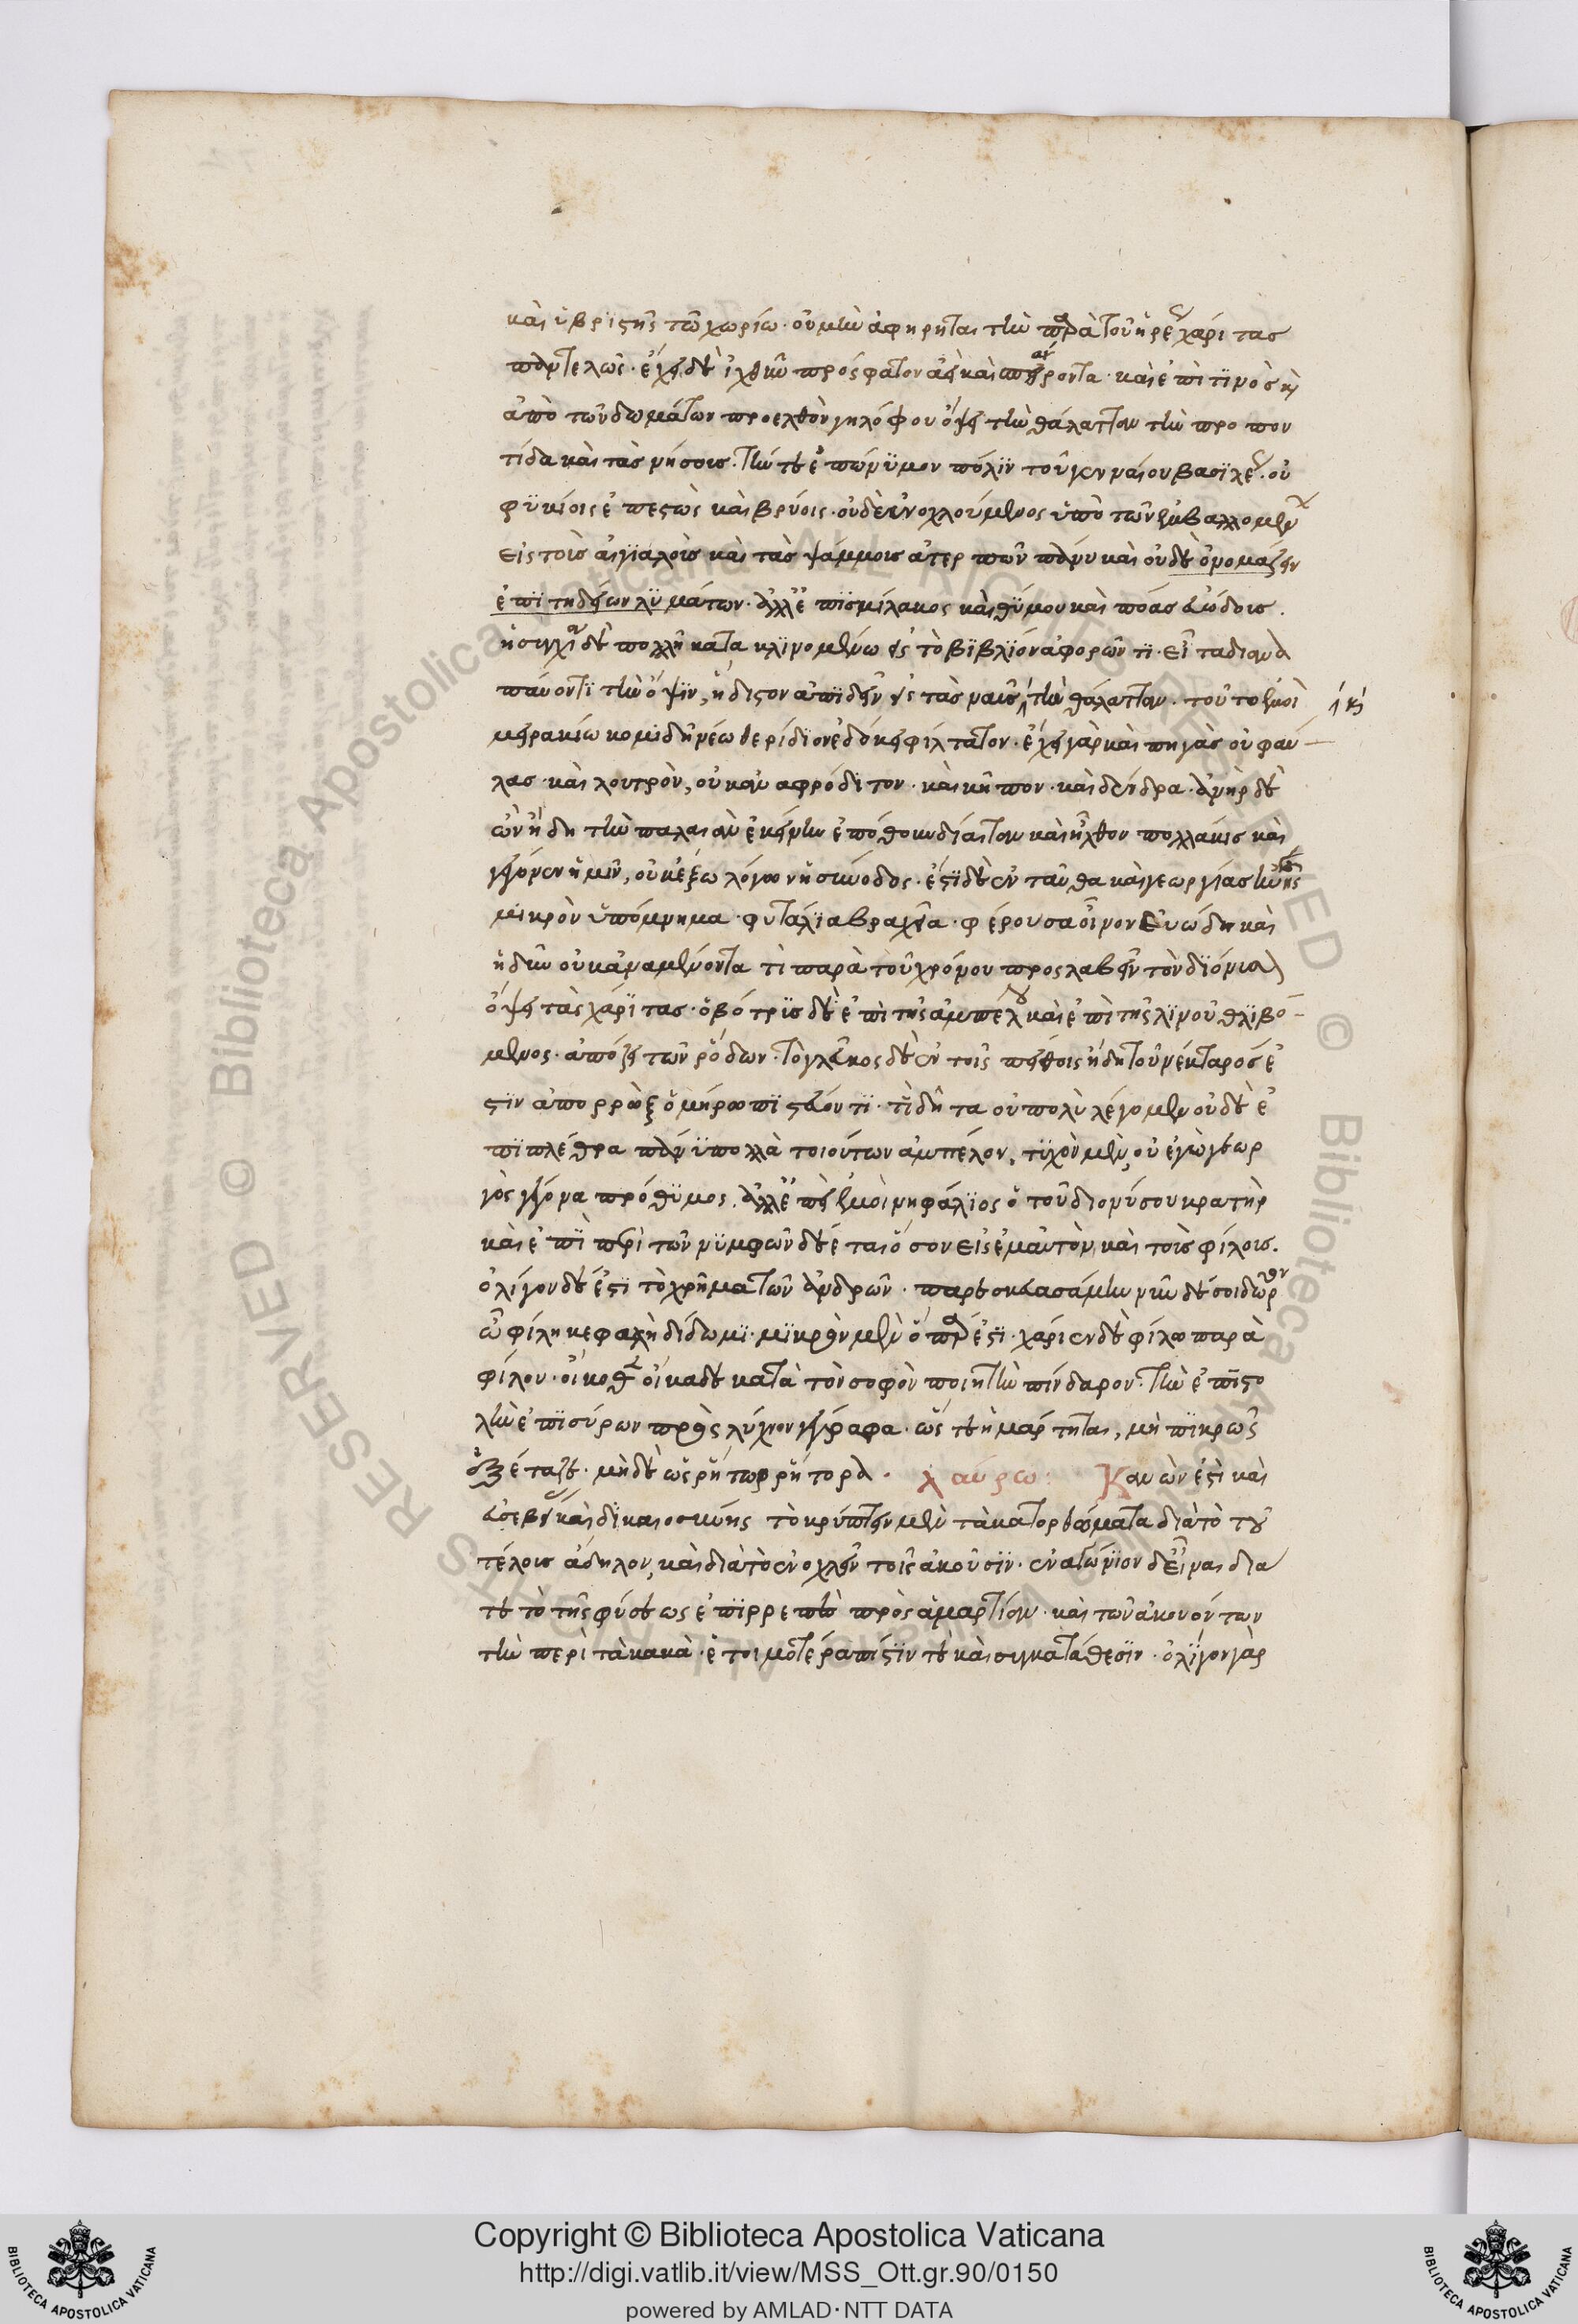 καὶ ὑβριστὴς τῶ χωρίω· οὐ μὴν ἀφήρηται τὴν παρὰ τοῦ νηρέως χάριτας
παντελῶς· ἔχει δὲ ἰχθὺν πρόσφατον ἀεὶ καὶ ἀσπαίροντα· καὶ ἐπὶ τινὸς κὴ
ἀπὸ τῶν δωμάτων προελθὸν γηλόφου ὄψει τὴν θάλατταν τὴν προπον
τίδα καὶ τὰς νήσους. τήν τε ἐπώνυμον πόλιν τοῦ γενναίου βασιλέως. οὐ
φυκίοις ἐπεστὼς καὶ βρύοις· οὐδὲ ἐνοχλούμενος ὑπὸ τῶν ἐμβαλλομένων
εἰς τοὺς αἰγιαλοὺς καὶ τὰς ψάμμους ἀτερπῶν πάνυ καὶ οὐδὲ ὀνομάζειν
ἐπιτηδείων λυμάτων· ἀλλ' ἐπὶ σμίλακος καὶ θύμου καὶ πόας εὐώδους.
ἡσυχία δὲ πολλὴ κατακλινομένω εἰς τὸ βιβλίον ἀφορῶντι· εἶτα διανα
παύοντι τὴν ὄψιν, ἥδιστον ἀπιδεῖν εἰς τὰς ναῦς τὴν θάλατταν. τοῦτο ἐμοὶ ⁒ κὴ
μειρακίω κομιδῆ νέω θερίδιον ἐδόκει φίλτατον· ἔχει γὰρ καὶ πηγὰς οὐ φαύ
λας· καὶ λουτρὸν, οὐκ ἀναφρόδιτον· καὶ κῆπον· καὶ δένδρα· ἀνὴρ δὲ
ὢν ἤδη τὴν παλαιὰν ἐκείνην ἐπόθουν δίαιταν καὶ ἦλθον πολλάκις καὶ
γέγονεν ἡμῖν, οὐκ ἔξω λόγων ἡ σύνοδος. ἔστι δὲ ἐνταῦθα καὶ γεωργίας ἐμῆς
μικρὸν ὑπόμνημα· φυταλία βραχεῖα· φέρουσα οἶνον εὐώδη καὶ
ἡδὺν οὐκ ἀναμένοντά τι παρὰ τοῦ χρόνου προσλαβεῖν τὸν διόνυσον
ὄψει τὰς χάριτας· ὁ βότρυς δὲ ἐπὶ τῆς ἀμπέλου καὶ ἐπὶ τῆς ληνοῦ θλιβό
μενος· ἀπόζει τῶν ῥόδων· τὸ γλεῦκος δὲ ἐν τοῖς πίθοις ἤδη τοῦ νέκταρός ἐ
στιν ἀπορρὼξ ὁμήρω πιστεύοντι· τί δῆτα οὐ πολὺ λέγομεν οὐδὲ ἐ
πὶ πλέθρα πάνυ πολλὰ τοιούτων ἀμπέλον, τυχὸν μὲν, οὐ ἐγὼ γεωρ
γὸς γέγονα πρόθυμος. ἀλλ' ἐπεὶ ἐμοὶ νηφάλιος ὁ τοῦ διονύσου κρατὴρ
καὶ ἐπὶ περὶ τῶν νυμφῶν δέεται ὅσον εἰς ἐμαυτὸν, καὶ τοὺς φίλους.
ὀλίγον δέ ἐστι τὸ χρῆμα τῶν ἀνδρῶν· παρεσκευασάμην νῦν δέ σοι δῶρον
ὦ φίλη κεφαλὴ δίδωμι· μικρὸν μὲν ὅπερ ἐστί· χαρίεν δὲ φίλω παρὰ
φίλου· οἴκοθεν οἴκαδε κατὰ τὸν σοφὸν ποιητὴν πίνδαρον. τὴν ἐπιστο
λὴν ἐπισύρων πρὸς λύχνον γέγραφα· ὥστε ἡμάρτηται, μὴ πικρῶς
ἐξέταζε· μὴ δὲ ὡς ῥήτωρ ῥήτορα. λαύρω: Κανών ἐστι καὶ
εὐσεβείας καὶ δικαιοσύνης τὸ κρύπτειν μὲν τὰ κατορθώματα διὰ τὸ τοῦ
τέλους ἄδηλον, καὶ διὰ τὸ ἐνοχλεῖν τοῖς ἀκούουσιν. ἐναγώνιον δ' εἶναι διὰ
τε τὸ τῆς φύσεως ἐπιρρεπὲς πρὸς ἁμαρτίαν· καὶ τῶν ἀκουόντων
τὴν περὶ τὰ κακὰ ἑτοιμοτέρα πίστιν τε καὶ συγκατάθεσιν. ὀλίγον γὰρ
Copyright © Biblioteca Apostolica Vaticana
http://digi.vatlib.it/view/MSS_Ott.gr.90/0150
powered by AMLAD·NTT DATA